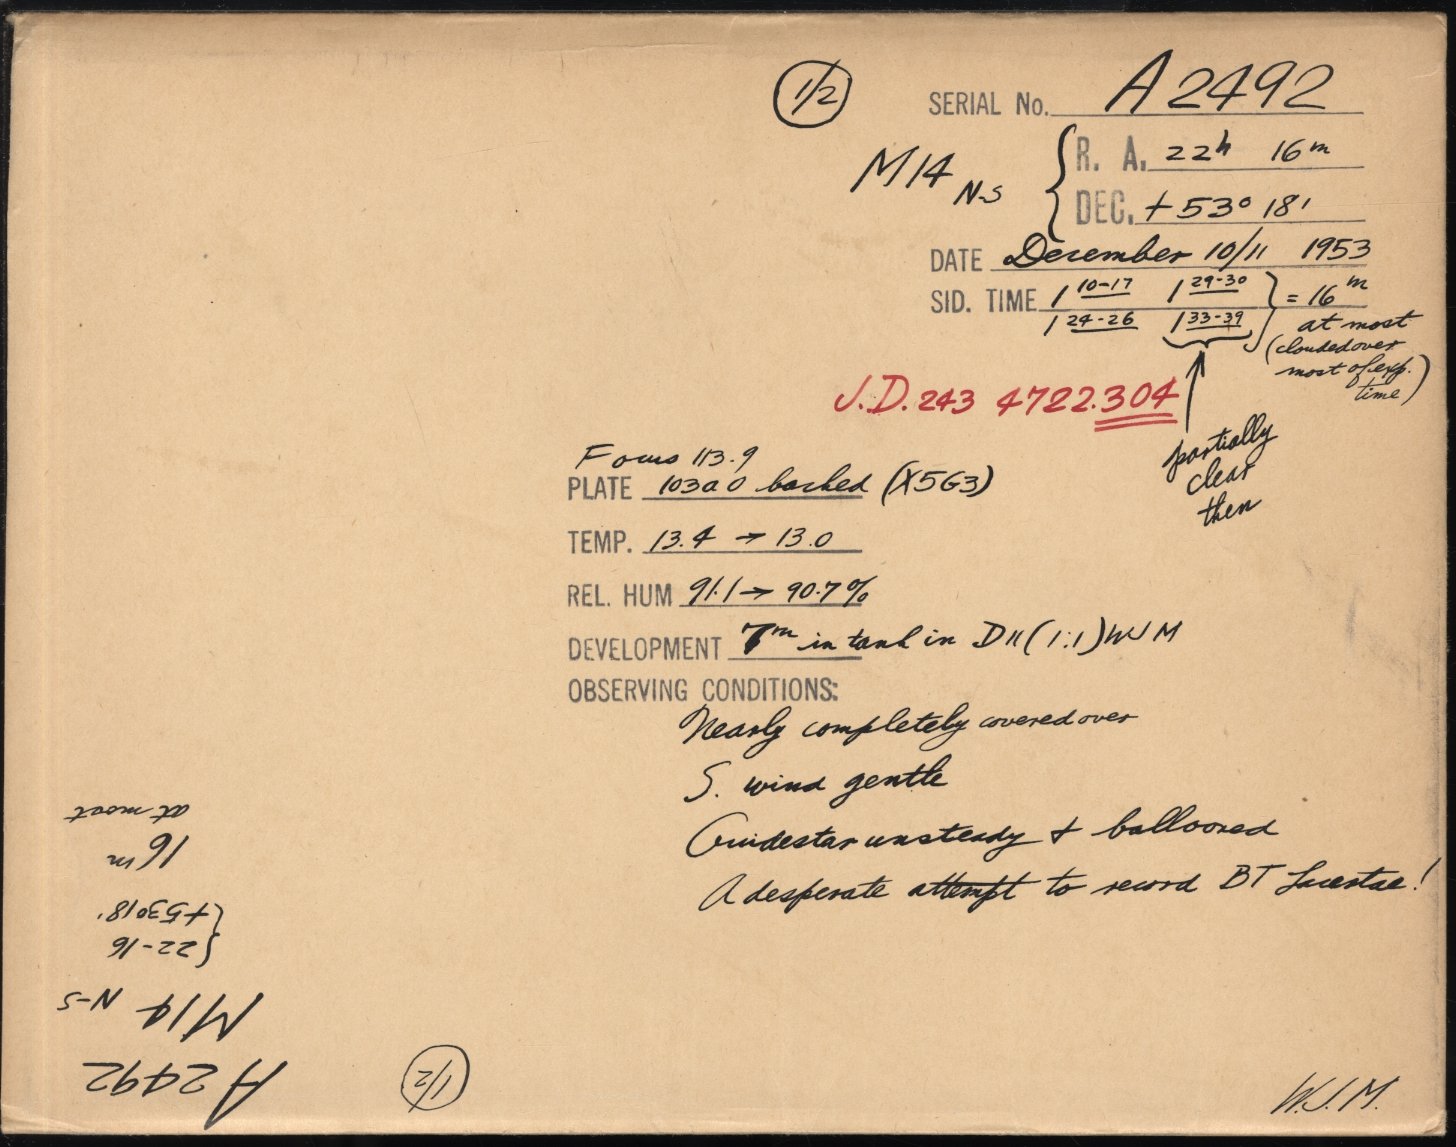 1/2
SERIAL No. A2492
M14 N-S
R. A. 22h 16m
DEC. +53° 18'
DATE December 10/11 1953
SID. TIME 1 10-17 1 29-30
1 24-26 1 33-39
= 16m
at most
(clouded over
most of exp.
time)
J.D. 243 4722.304
partially
clear
then
Focus 113.9
PLATE 103aO backed (X5G3)
TEMP. 13.4 → 13.0
REL. HUM 91.1 → 90.7%
DEVELOPMENT 7m in tank in D11 (1:1) WJM
OBSERVING CONDITIONS:
Nearly completely covered over
S. wind gentle
Guidestar unsteady & ballooned
A desperate attempt to record BT Lacertae!
A2492
M14 N-S
{22-16
{+53°18'
16m
at most
1/2
W.J.M.